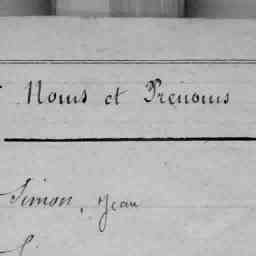 Noms et Prenoms
Simon, Jean